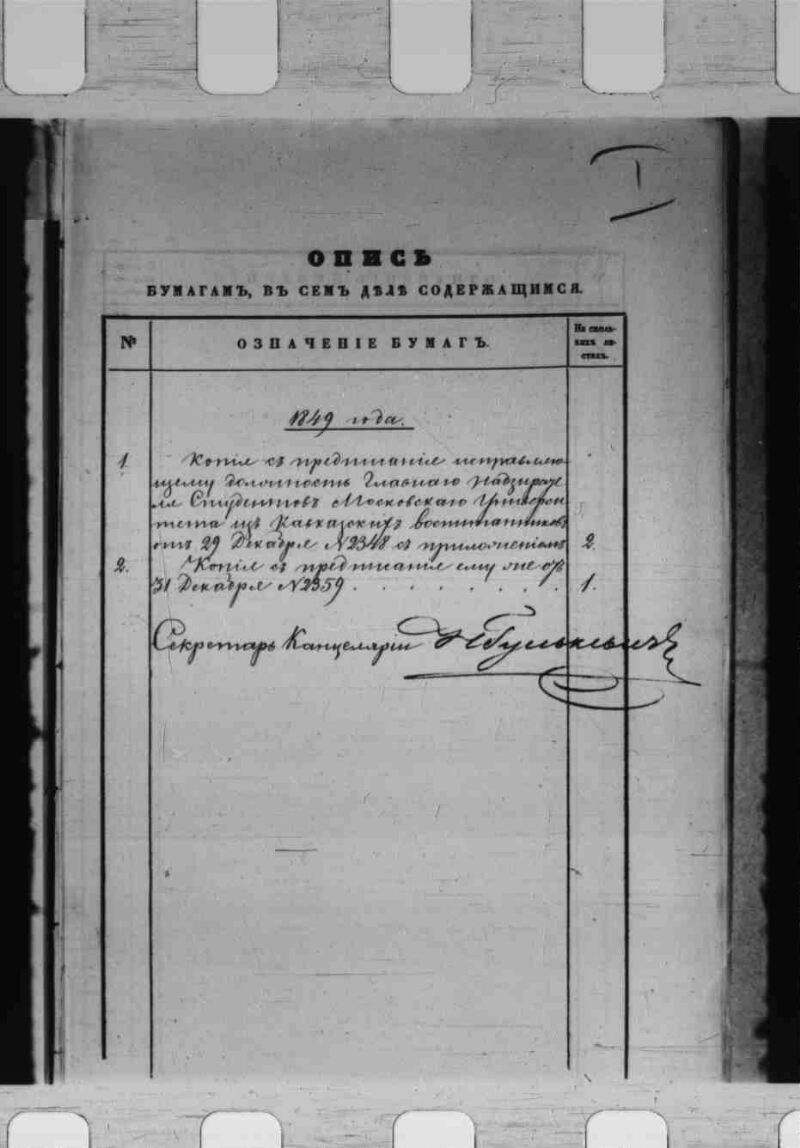 I
ОПИСЬ
БУМАГАМЪ, ВЪ СЕМЪ ДѢЛѢ СОДЕРЖАЩИМСЯ.
№ ОЗНАЧЕНІЕ БУМАГЪ. На сколь-
кихъ ли-
стахъ.
1849 года.
1. Копія съ предписанія исправляю-
щему должность Главнаго Надзирате-
ля Студентовъ Московскаго Универси-
тета изъ Кавказскихъ воспитанниковъ
отъ 29 Декабря №2348 съ приложеніемъ 2.
2. Копія съ предписанія ему же отъ
31 Декабря №2359 . . . . . . . . 1.
Секретарь Канцеляріи